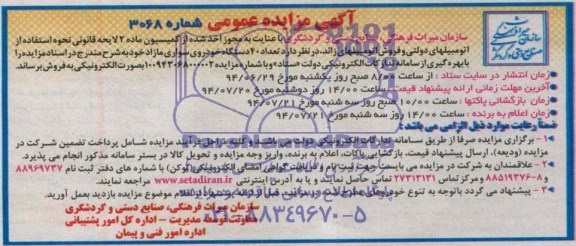 آگهی مزایده عمومی شماره ۳۰۶۸
سازمان میراث فرهنگی، صنایع دستی و گردشگری با عنایت به مجوز اخذ شده از کمیسیون ماده ۲ لایحه قانونی نحوه استفاده از
اتومبیلهای دولتی و فروش اتومبیلهای زائد، در نظر دارد تعداد ۴۰ دستگاه خودروی سواری مازاد خود به شرح مندرج در اسناد مزایده را
با بهره گیری از سامانه تدارکات الکترونیکی دولت ستاد و با شماره مزایده ۱۰۰۹۴۳۰۶۸۰۰۰۰۲ بصورت الکترونیکی به فروش برساند.
زمان انتشار در سایت ستاد : از ساعت ۸/۰۰ صبح روز یکشنبه مورخ ۹۴/۰۶/۲۹
آخرین مهلت زمانی ارائه پیشنهاد قیمت: ساعت ۱۴/۰۰ روز دوشنبه مورخ ۹۴/۰۷/۲۰
زمان بازگشائی پاکتها : ساعت ۱۰/۰۰ صبح روز سه شنبه مورخ ۹۴/۰۷/۲۱
زمان اعلام به برنده : ساعت ۱۴/۰۰ روز سه شنبه مورخ ۹۴/۰۷/۲۱
ضمنا رعایت موارد ذیل الزامی می باشد :
۱- برگزاری مزایده صرفا از طریق سامانه تدارکات الکترونیکی دولت می باشد و کلیه مراحل فرآیند مزایده شامل پرداخت تضمین شرکت در
مزایده (ودیعه)، ارسال پیشنهاد قیمت، بازگشایی پاکات، اعلام به برنده، واریز وجه مزایده و تحویل کالا در بستر سامانه مذکور انجام می پذیرد.
۲- علاقمندان به شرکت در مزایده می بایست جهت ثبت نام و دریافت گواهی امضای الکترونیکی (توکن) با شماره های دفتر ثبت نام ۸۸۹۶۹۷۳۷
و ۸-۸۸۵۱۹۳۷۶ و مرکز تماس ۲۷۳۱۳۱۳۱ تماس حاصل نمایند و یا به آدرس اینترنتی www.setadiran.ir مراجعه نمایند.
۳- پیشنهاد می گردد باتوجه به تنوع خودروهای مزایده بازدید بعمل آورید.
سازمان میراث فرهنگی، صنایع دستی و گردشگری
معاونت توسعه مدیریت - اداره کل امور پشتیبانی
اداره امور فنی و پیمان
۰۲۱-۸۸۳۴۹۶۷۰-۵